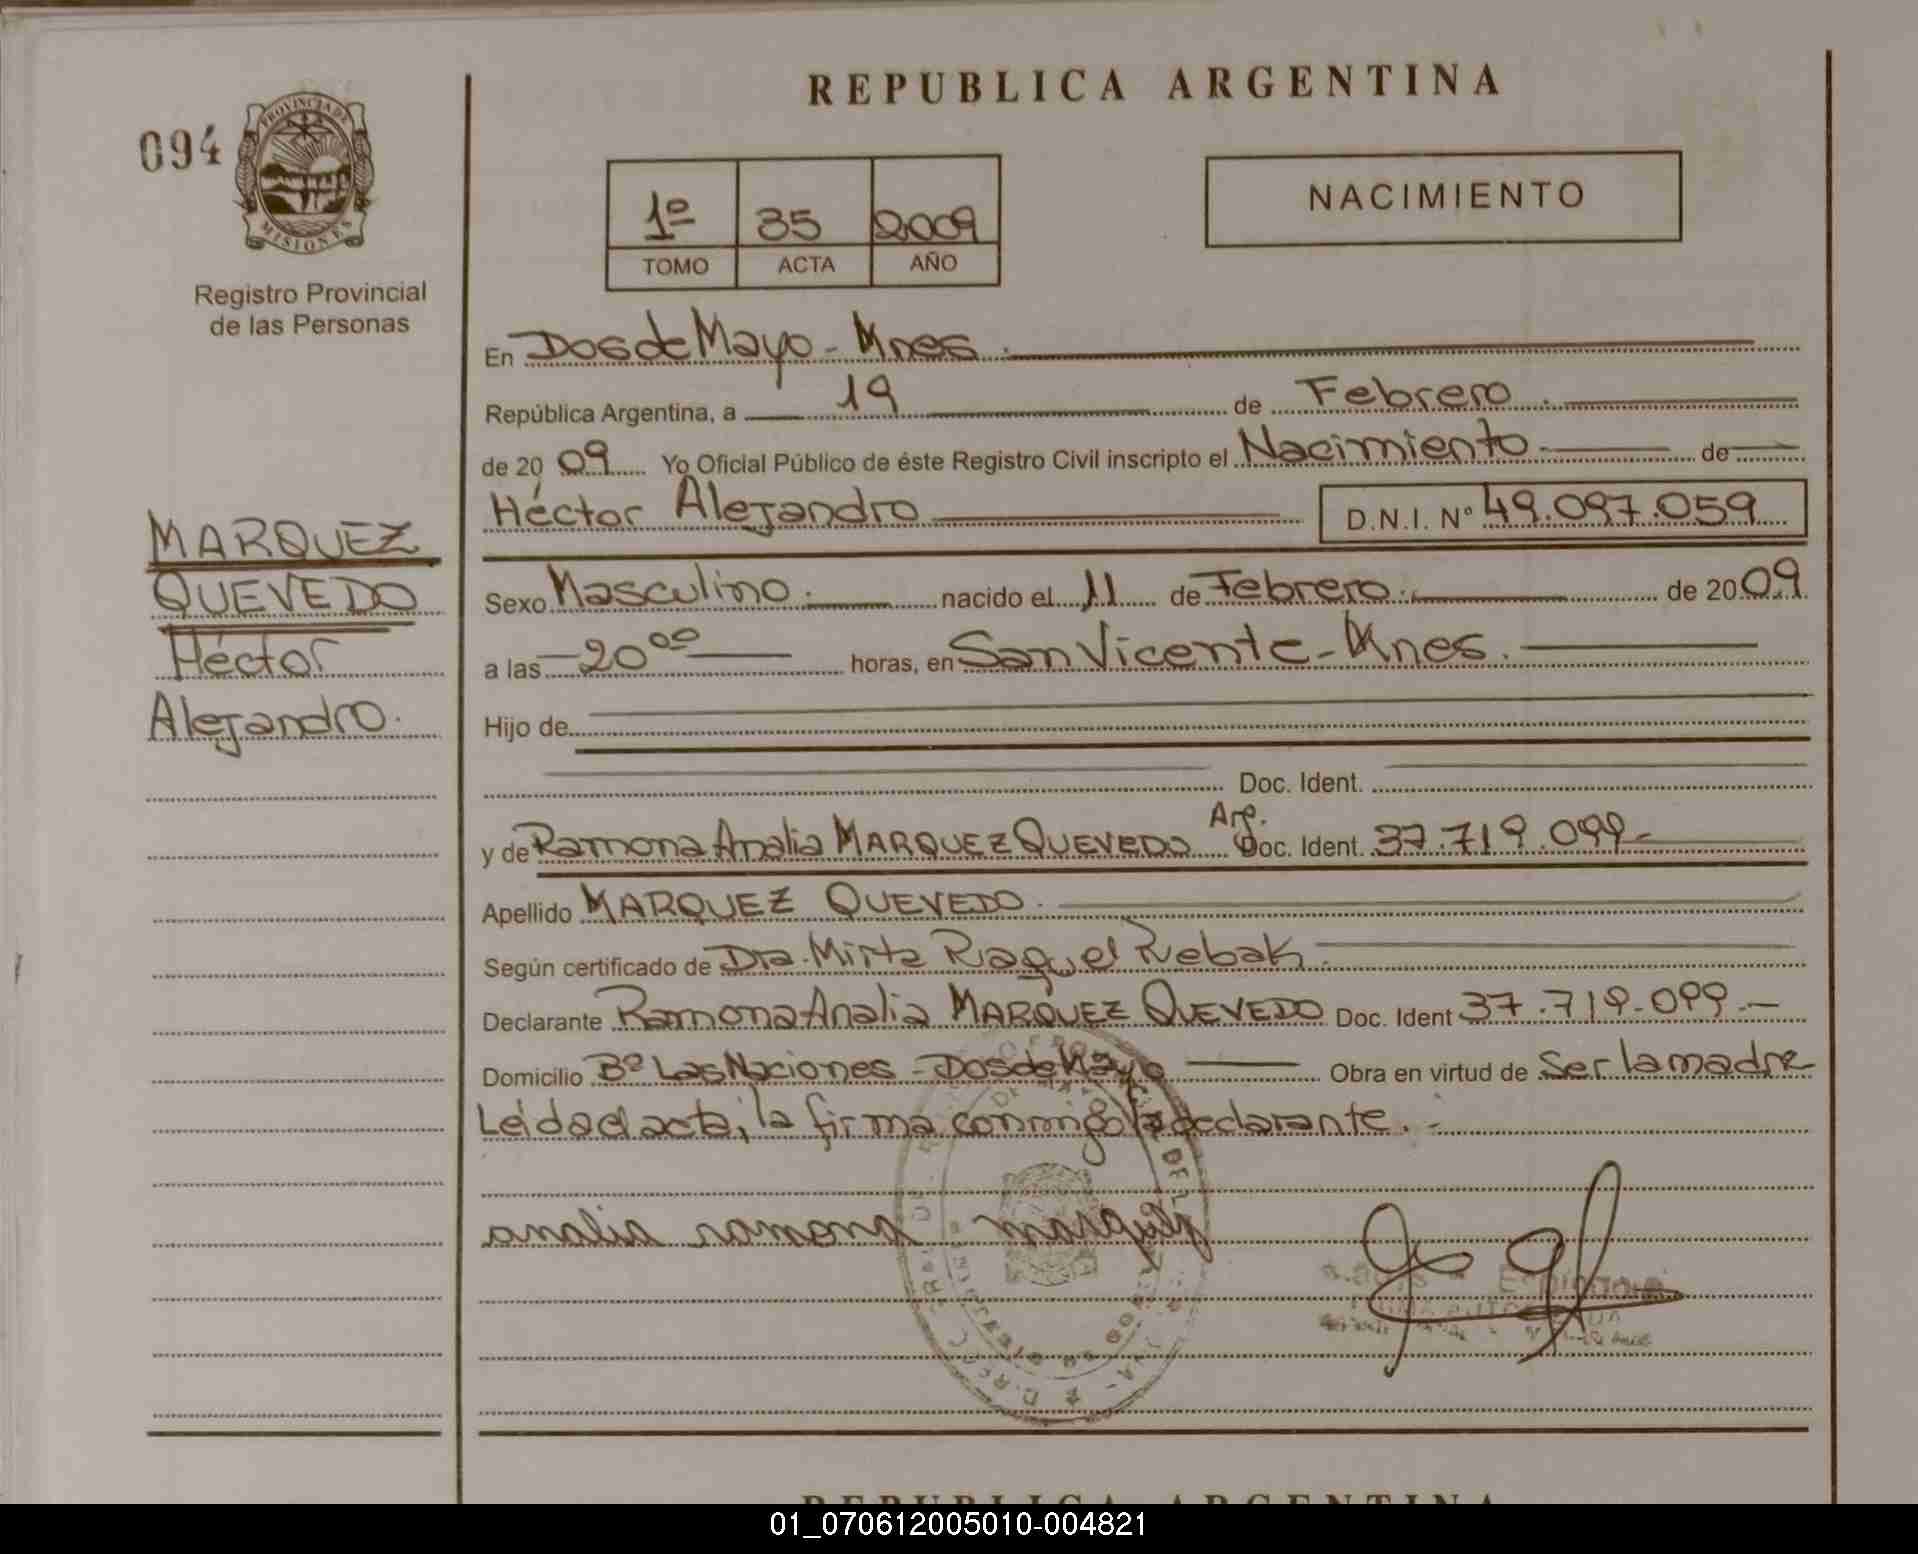 REPUBLICA ARGENTINA
094
PROVINCIA DE
MISIONES
Registro Provincial
de las Personas
1º 35 2009
TOMO ACTA AÑO
NACIMIENTO
En Dos de Mayo - Mnes.
República Argentina, a 19 de Febrero.
de 2009 Yo Oficial Público de éste Registro Civil inscripto el Nacimiento de
Héctor Alejandro D.N.I. Nº 49.097.059
MARQUEZ
QUEVEDO
Héctor
Alejandro.
Sexo Masculino. nacido el 11 de Febrero. de 2009
a las 20 ºº horas, en San Vicente - Mnes.
Hijo de
Doc. Ident.
y de Ramona Analia MARQUEZ QUEVEDO Arg. Doc. Ident. 37.719.099-
Apellido MARQUEZ QUEVEDO.
Según certificado de Dra. Mirta Raquel Rebak.
Declarante Ramona Analia MARQUEZ QUEVEDO Doc. Ident 37.719.099.-
Domicilio Bº Las Naciones - Dos de Mayo Obra en virtud de Ser la madre
Leída el acta, la firma conmigo la declarante.-
analia ramona marquez
REPUBLICA ARGENTINA
01_070612005010-004821